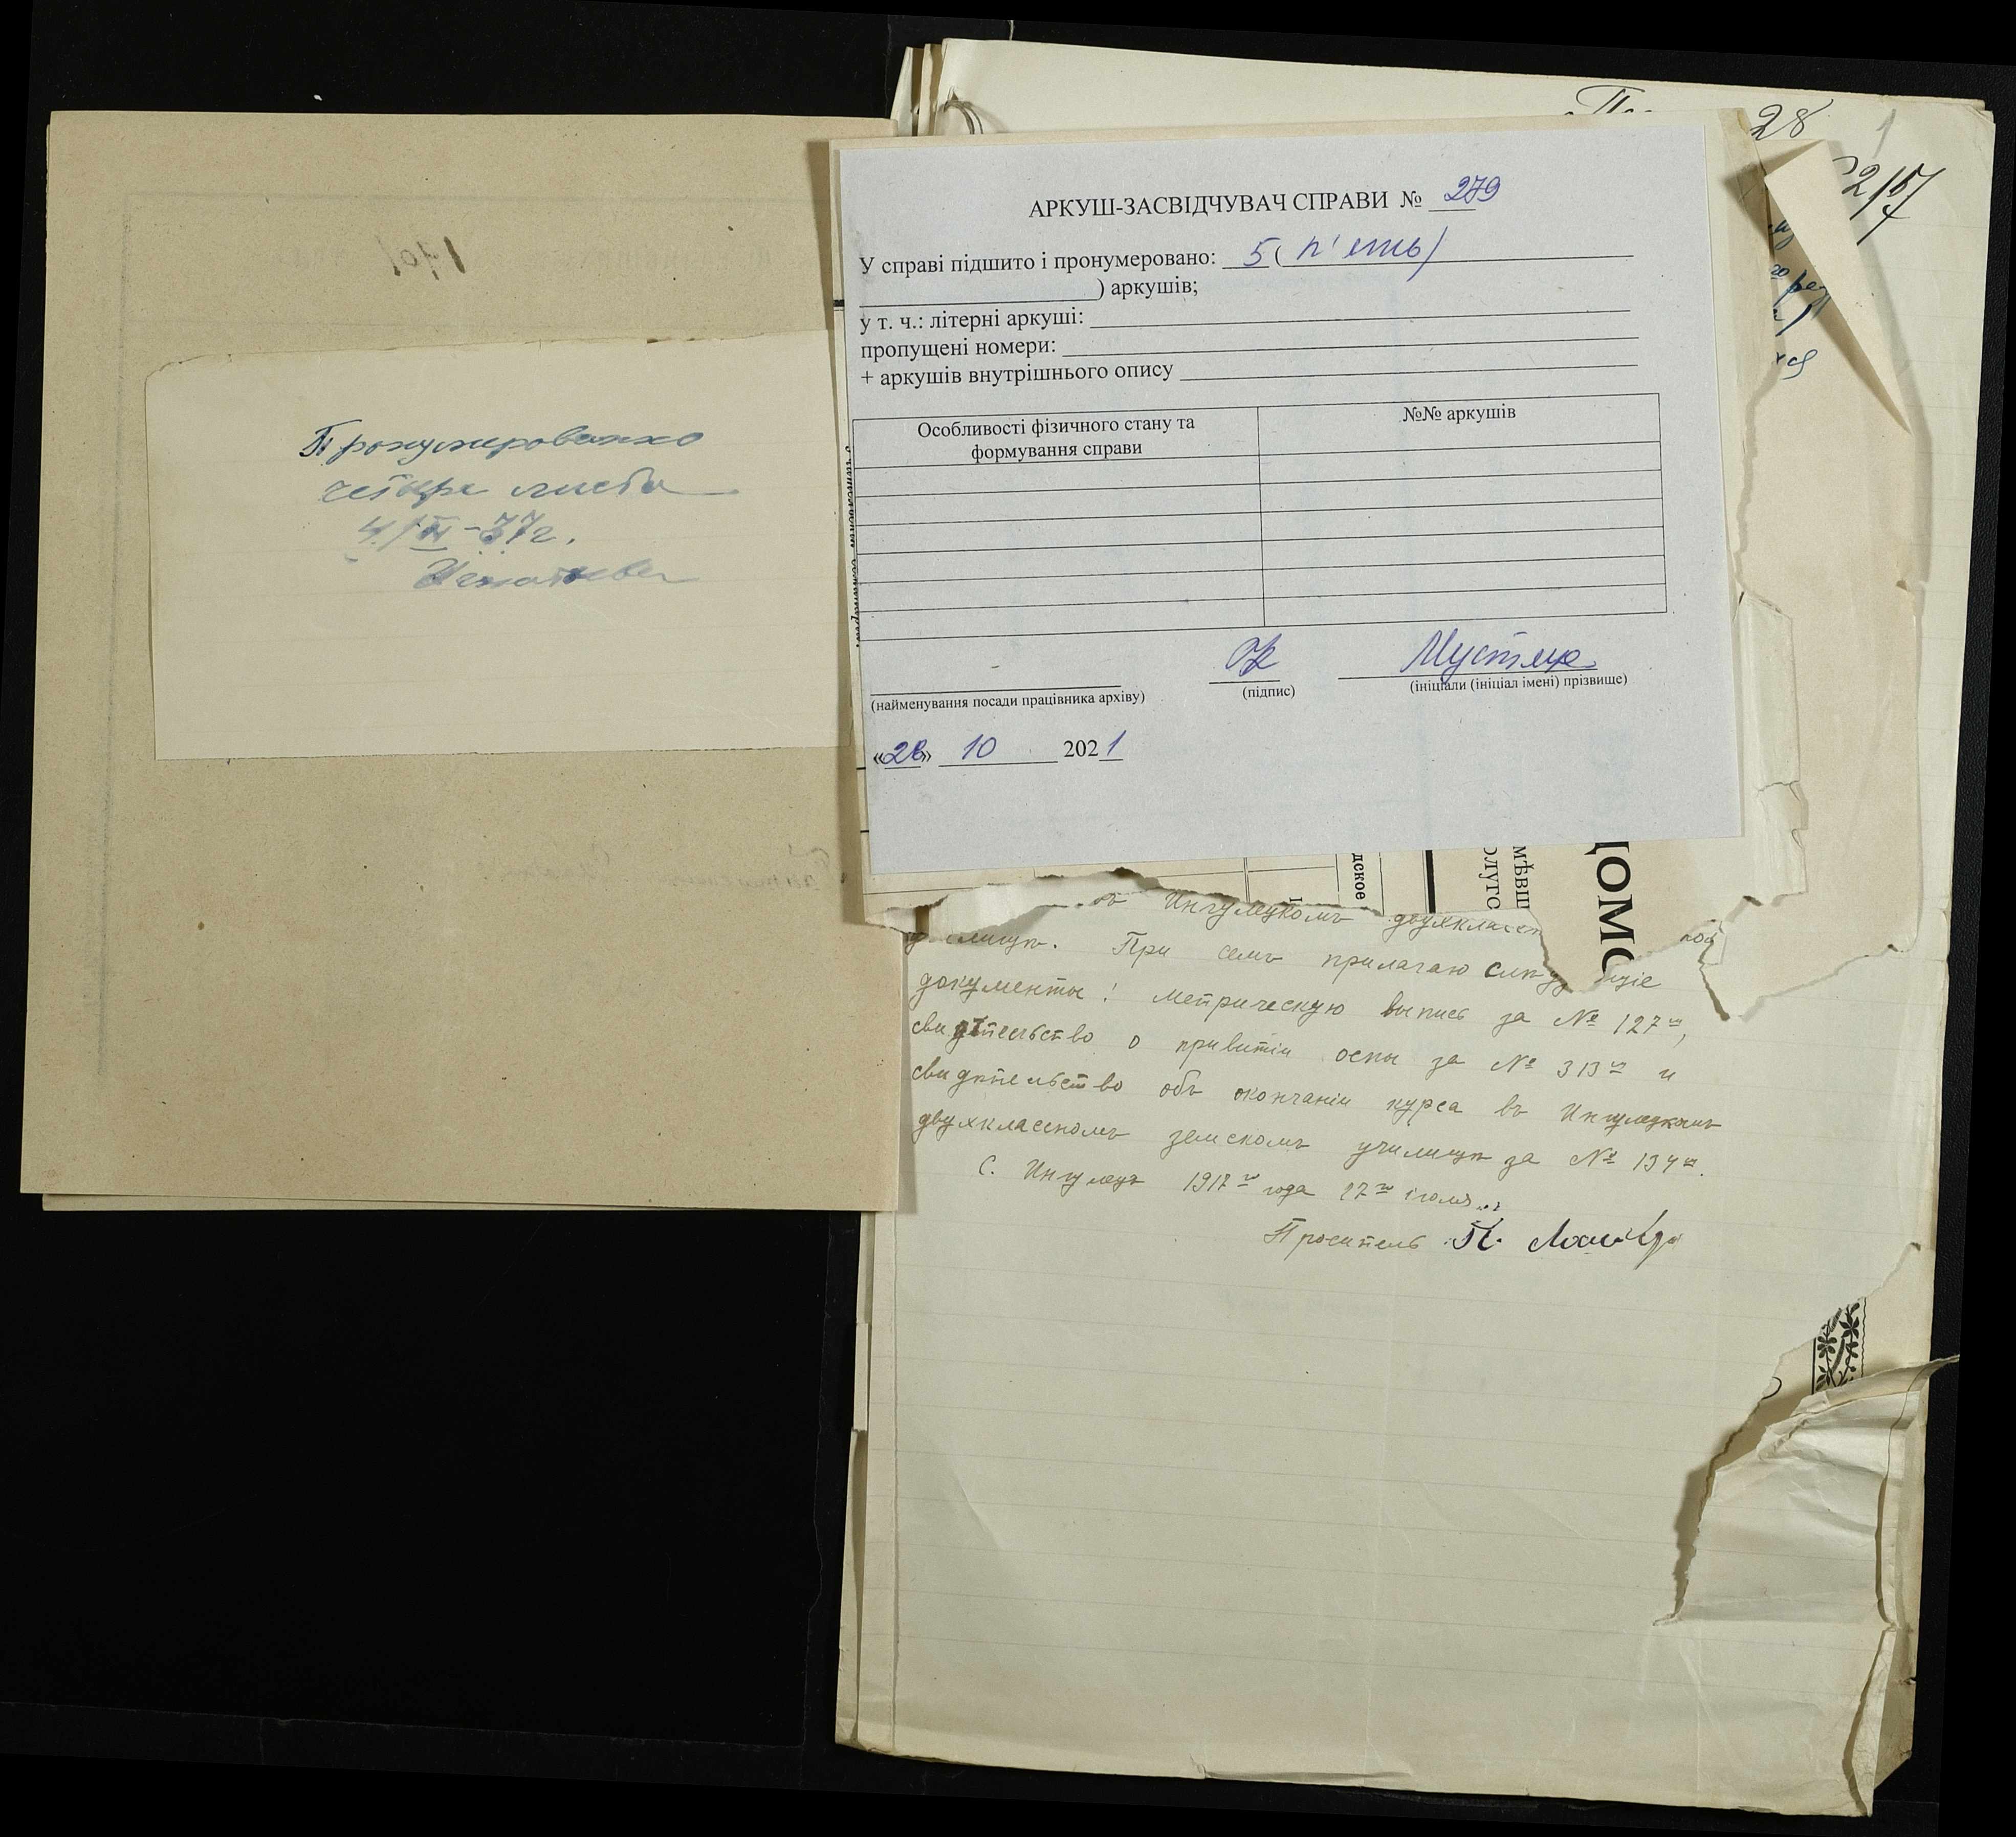 Пронумеровано
четыре листа
АРКУШ-ЗАСВІДЧУВАЧ СПРАВИ № 279
У справі підшито і пронумеровано: 5 ( п'ять)
) аркушів;
у т. ч.: літерні аркуші:
пропущені номери:
+ аркушів внутрішнього опису
Особливості фізичного стану та формування справи
№№ аркушів
(найменування посади працівника архіву)
(підпис)
(ініціали (ініціал імені) прізвище)
«28» 10 2021
28
дское
ОЛУГС
МѢВШ
ДОМО
Ингулецкомъ двухклассн
При семъ прилагаю слѣду щіе
документы: метрическую выпись за № 127ш,
свидѣтельство о привитіи оспы за № 313ш и
свидѣтельство объ окончаніи курса въ Ингулецкомъ
двухклассномъ земскомъ училищѣ за № 134ш.
С. Ингулецъ 1917го года 17го іюля.
Проситель П.